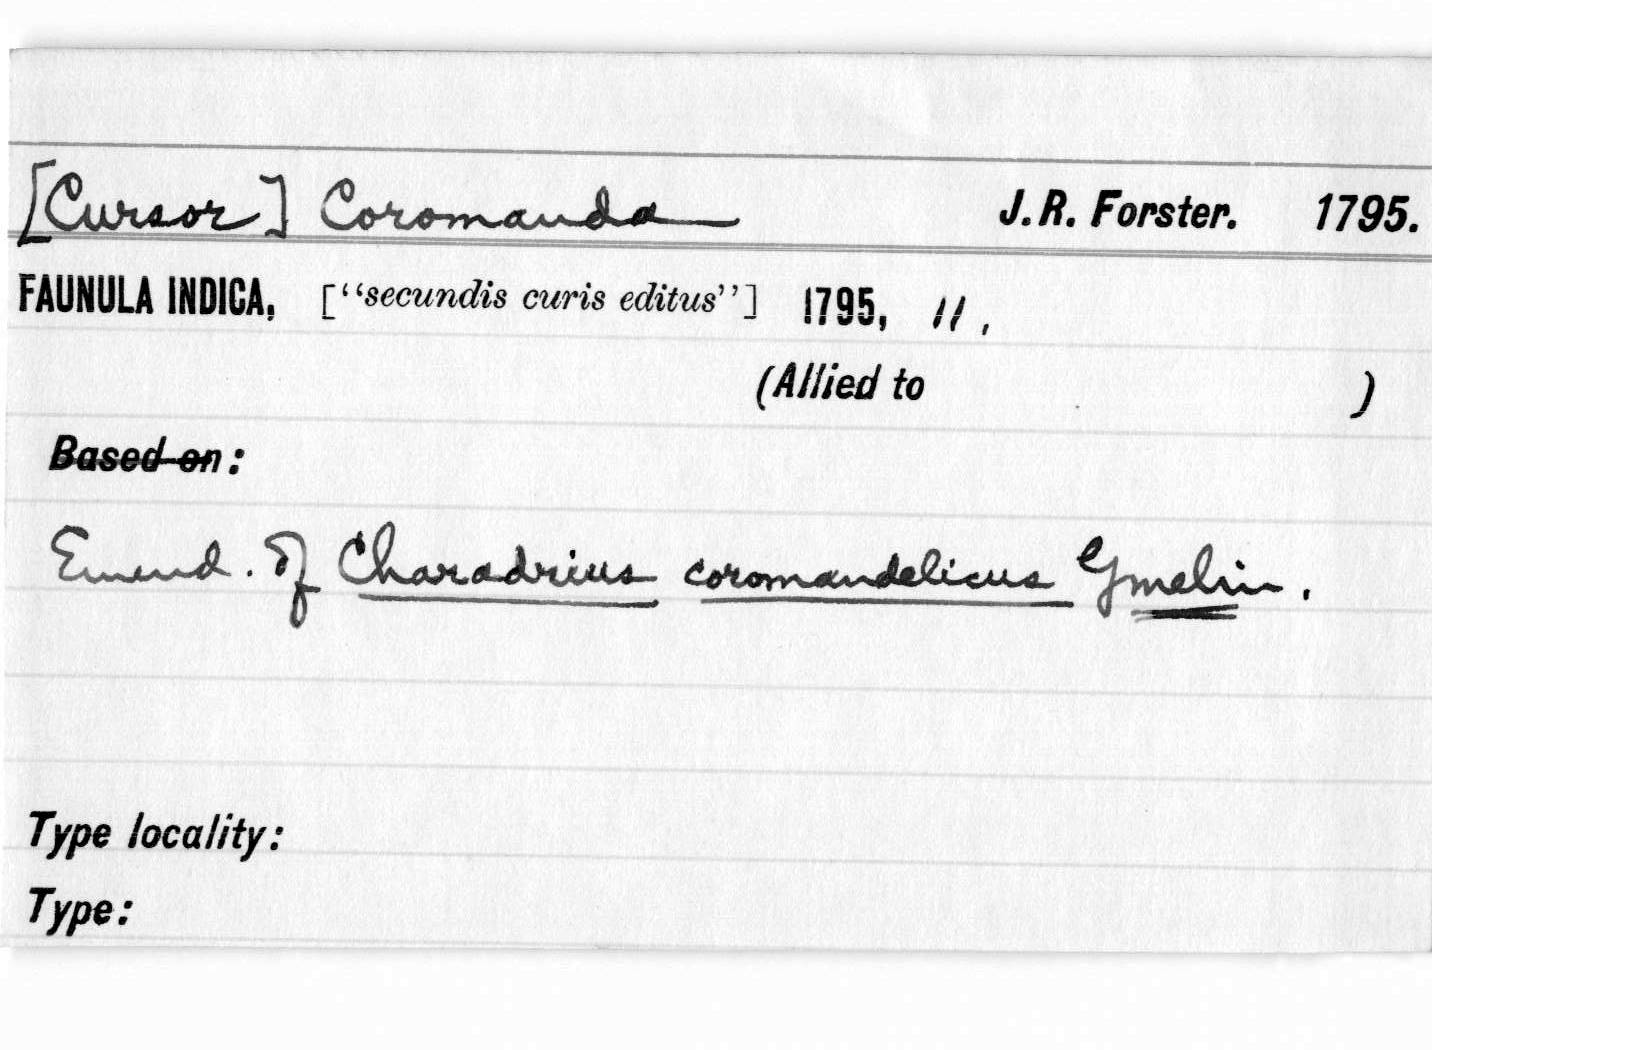 [Cursor] Coromanda J. R. Forster. 1795.
FAUNULA INDICA, [“secundis curis editus”] 1795, 11,
(Allied to )
Based on:
Emend. of Charadrius coromandelicus Gmelin.
Type locality:
Type: